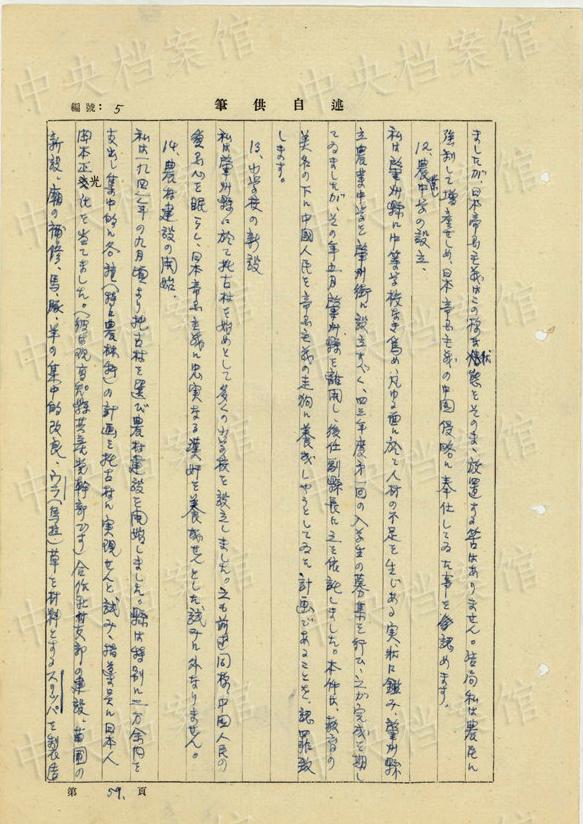 中央档案馆
編號：5
筆供自述
ましたが、日本帝国主義はこの様な状態をそのまゝ放置する筈はありません。結局私は農民に
強制して増産せしめ、日本帝国主義の中国侵略に奉仕してゐた事を認めます。
12、農業中学の設立、
私は肇州縣に中等学校なき為め、凡ゆる面に於て人材の不足を生じある実状に鑑み、肇州縣
立農業中学を肇州街に設立すべく、四三年度第一回の入学生の募集を行ひ、之が完成を期し
てゐましたが、その年五月肇州縣を離開し後任副縣長に之を依託しました。本件は、教育の
美名の下に中国人民を帝国主義の走狗に養成しやうとしてゐた計画であることを認罪致
します。
13、小学校の新設
私は肇州縣に於て托古村を始めとして多くの小学校を設立しました。之も前述同様、中国人民の
愛国心を眠らし、日本帝国主義に忠実なる漢奸を養成せんとした試みに外なりません。
14、農村建設の開始、
私は一九四二年の九月頃より托古村を選び農村建設を開始しました。縣は特別に一万余円を
支出し集中的に各種（特に農林畜）の計画を托古村に実現せんと試み、指導員に日本人
岡本正光 を当てました。合作社村支部の建設、苗圃の
新設、廟の補修、馬、豚、羊の集中的改良、ウラ（烏拉）草を材料とするスリッパを製造
第 59、頁